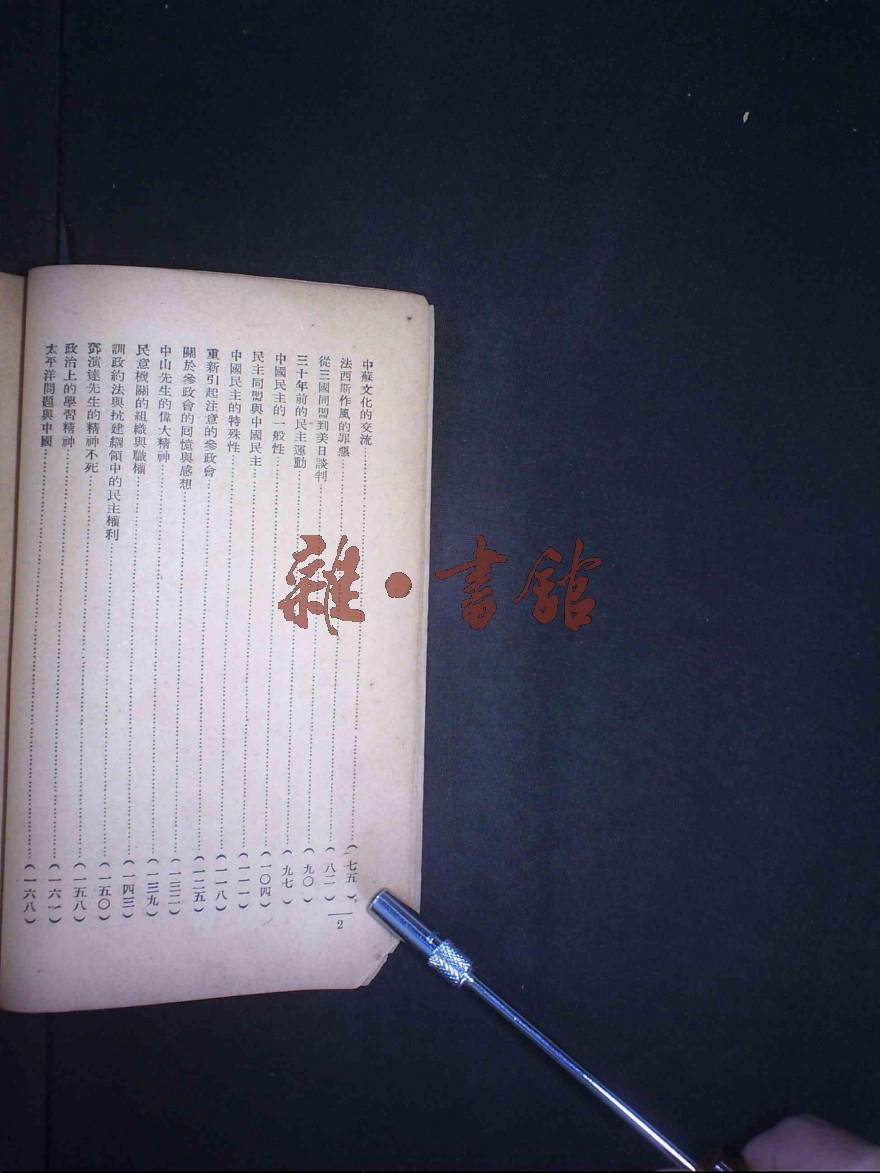 中蘇文化的交流……(七五)
法西斯作風的罪惡……(八二)
從三國同盟到美日談判……(九〇)
三十年前的民主運動……(九七)
中國民主的一般性……(一〇四)
民主同盟與中國民主……(一一一)
中國民主的特殊性……(一一八)
重新引起注意的參政會……(一二五)
關於參政會的回憶與感想……(一三二)
中山先生的偉大精神……(一三九)
民意機關的組織與職權……(一四三)
訓政約法與抗建綱領中的民主權利……(一五〇)
鄧演達先生的精神不死……(一五八)
政治上的學習精神……(一六一)
太平洋問題與中國……(一六八)
2
雜·書館